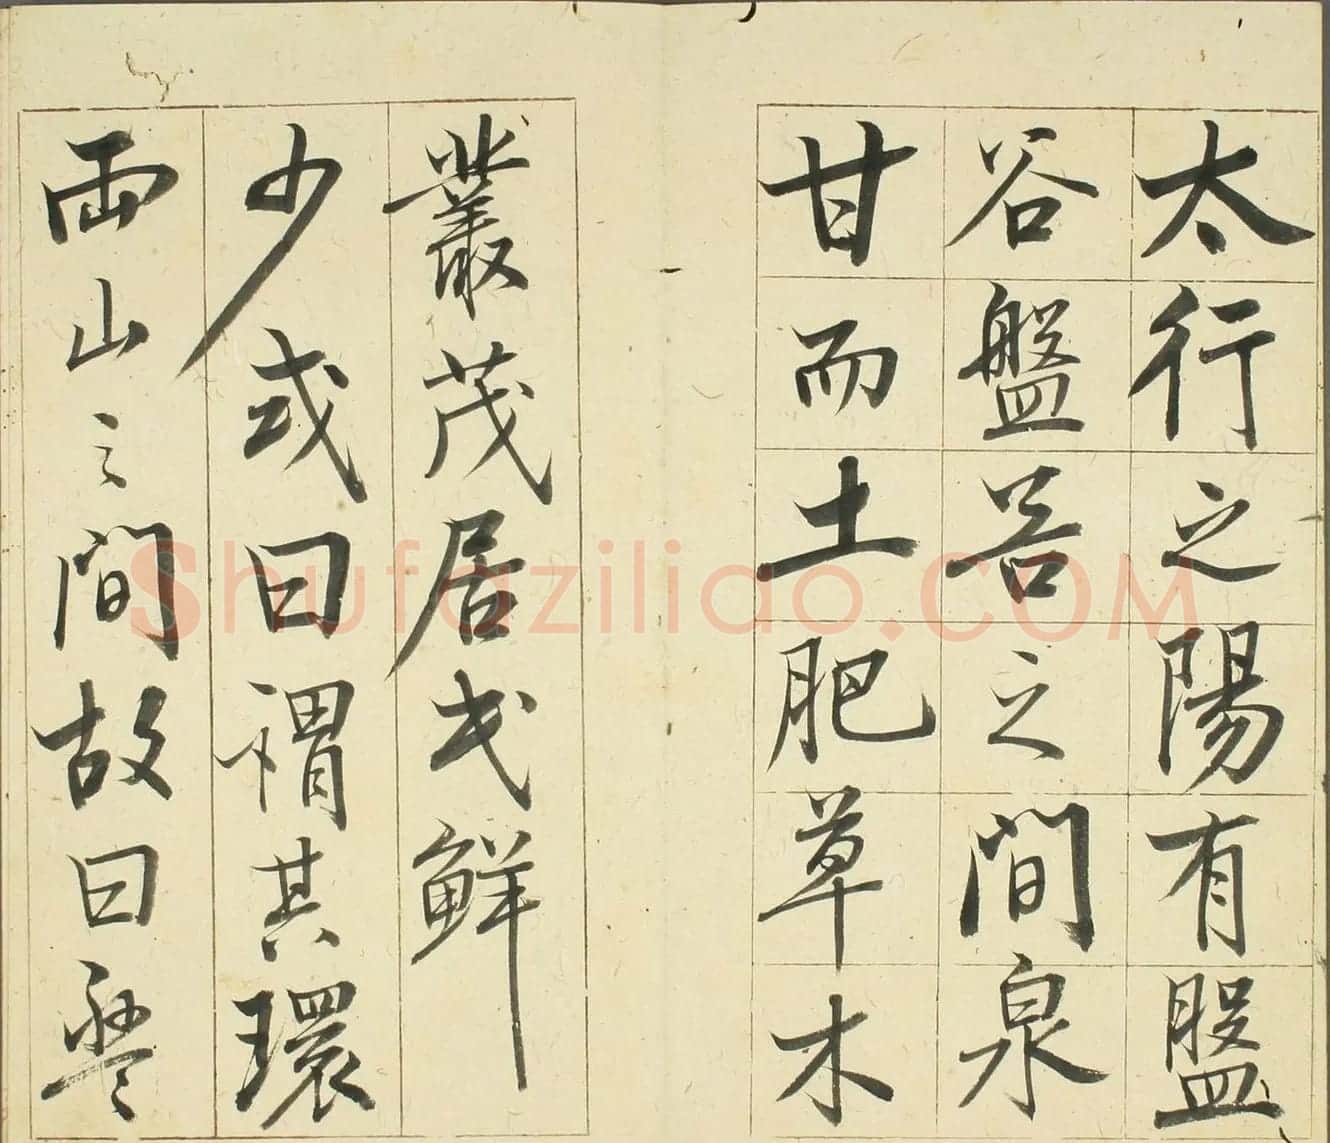 太行之陽有盤
谷盤谷之間泉
甘而土肥草木
叢茂居民鮮
少或曰謂其環
兩山之間故曰盤
Shufaziliao.COM